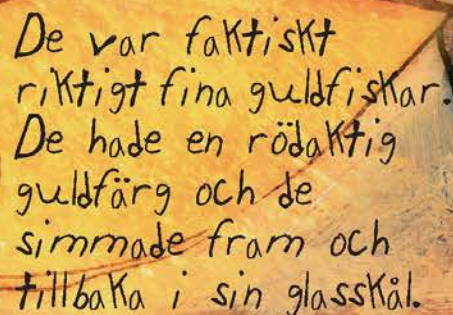 De var faktiskt
riktigt fina guldfiskar.
De hade en rödaktig
guldfärg och de
simmade fram och
tillbaka i sin glasskål.